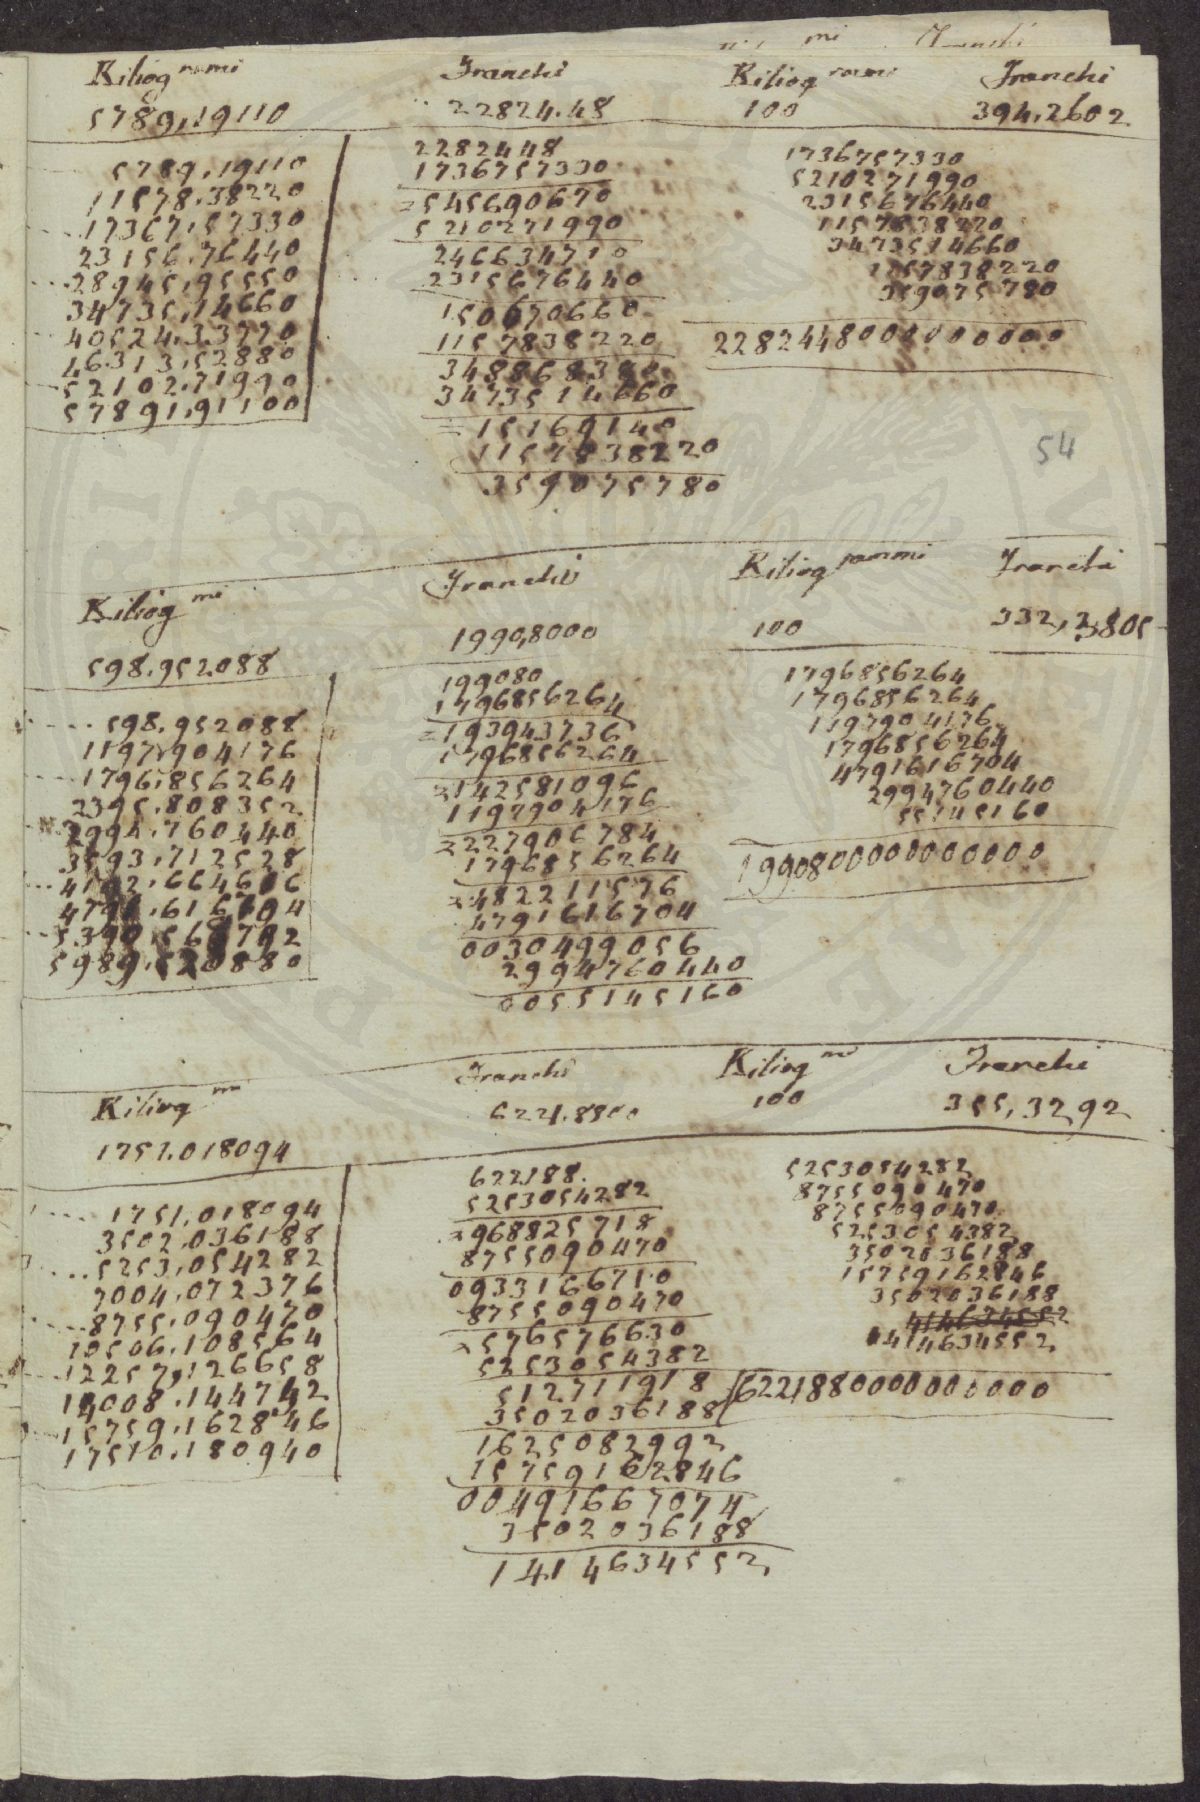 Kiliog rammi Franchi Kiliog rammi Franchi
5789,19110 22824.48 100 394,2602
5789,19110
11578,38220
17367,57330
23156,76440
28945,95550
34735,14660
40524,33770
46313,52880
52102,71990
57891,91100
2282448
1736757330
545690670
5210271990
246634710
2315676440
150670660
1157838220
348868380
3473514660
15169140
1157838220
359075780
1736757330
5210271990
2315676440
1157838220
3473514660
1157838220
359075780
2282448000000000
54
Kiliog mi Franchi Kiliog rammi Franchi
598.952088 1990,8000 100 332,3805
598.952088
1197,904176
1796,856264
2395,808352
2994,760440
3593,712528
4192,664616
4791,616704
5390,568792
5989,520880
199080
1796856264
193943736
1796856264
142581096
1197904176
227906784
1796856264
482211576
4791616704
0030499056
2994760440
0055145160
1796856264
1796856264
1197904176
1796856264
4791616704
2994760440
55145160
199080000000000
Kiliog mi Franchi Kiliog mi Franchi
1751.018094 6221.8800 100 355,3292
1751,018094
3502,036188
5253,054282
7004,072376
8755,090470
10506,108564
12257,126658
14008,144742
15759,162846
17510,180940
622188
5253054282
968825718
8755090470
0933166710
8755090470
576576630
5253054382
512711918
3502036188
1625082992
15759162846
00491667074
3502036188
1414634552
5253054282
8755090470
8755090470
5253054382
3502036188
15759162846
3502036188
414634552
1414634552
622188000000000